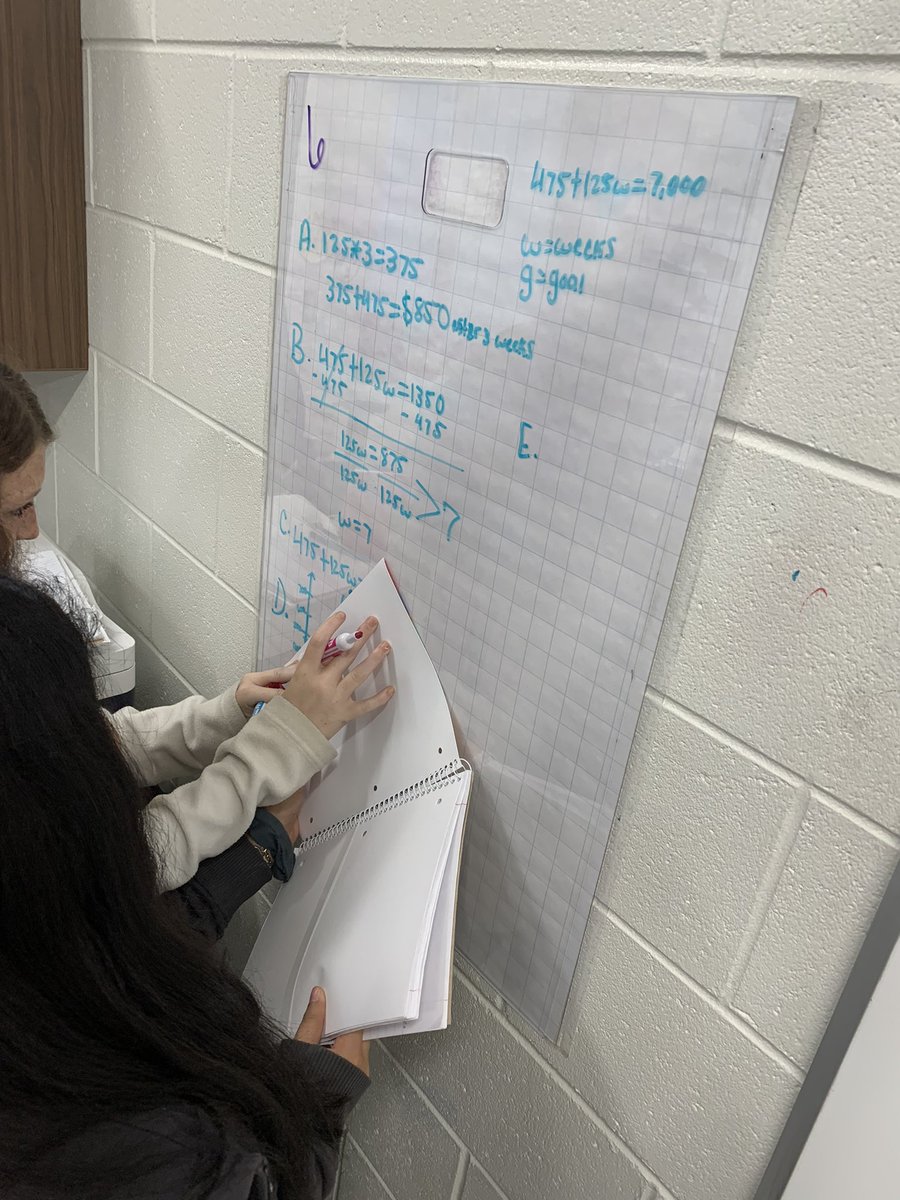 6
475+125w=7,000
w=weeks
g=goal
A. 125*3=375
375+475=$850 after 3 weeks
B. 475+125w=1350
-475 -475
125w=875
125w 125w >7
w=7
C. 475+125w=
D.
E.